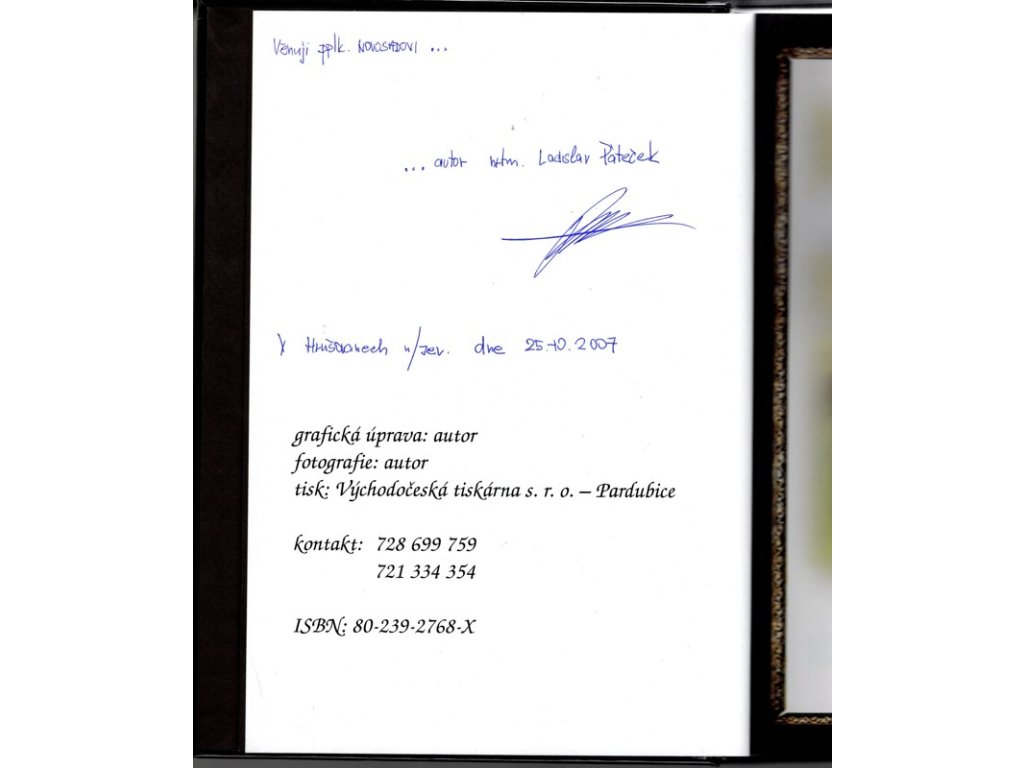 Věnuji pplk. NOVOSADOVI ...
... autor nrtm. Ladislav Páteček
V Hrušovanech n/Jev. dne 25.10.2007
grafická úprava: autor
fotografie: autor
tisk: Východočeská tiskárna s. r. o. – Pardubice
kontakt: 728 699 759
721 334 354
ISBN: 80-239-2768-X